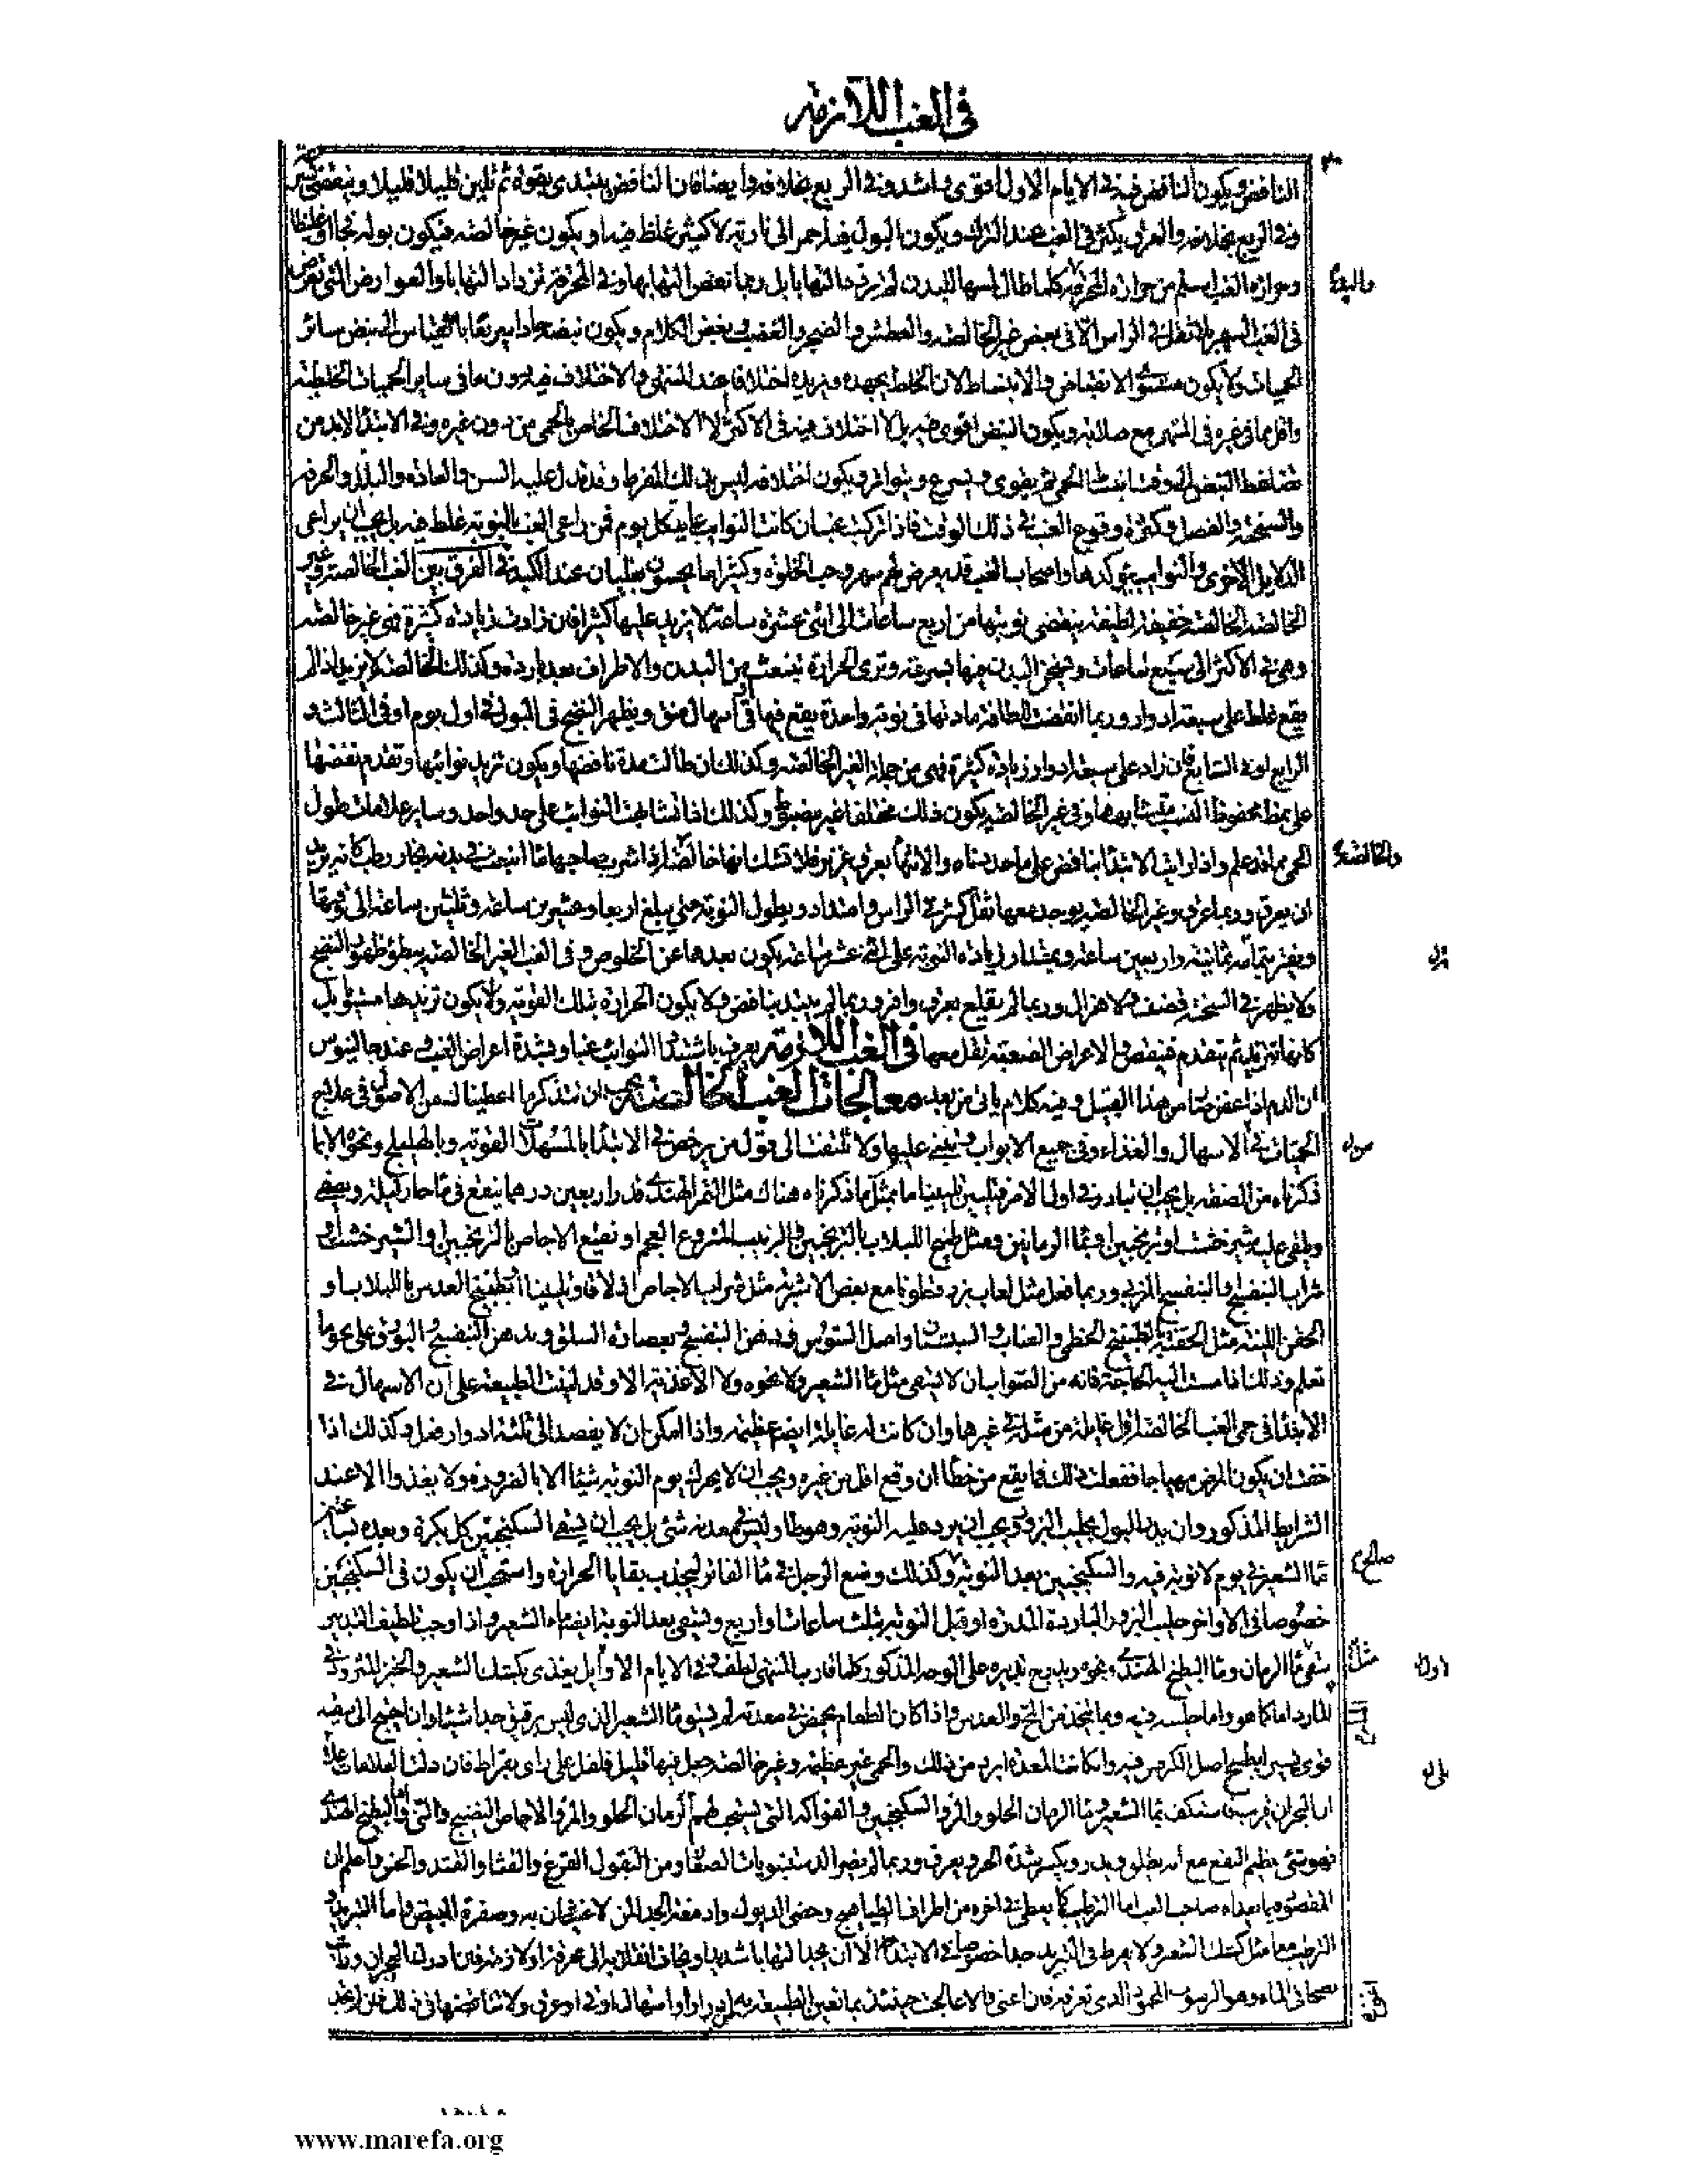 في الغب اللازمة
النافض ويكون النافض فيه في الايام الاول اقوى واشد وفي الربع بخلافه وايضا فان النافض يبتدى بقوة ثم تلين قليلا قليلا وينقضى
وفي الربع بخلافه والعرق يكثر في الغب عند الترك ويكون البول فيه احمر الى نارية لا كثير غلظ فيه او يكون غير خالصة فيكون بوله فجا او غليظا
وحرارة الغب اسلم من حرارة المحرقة كلما طال لمسها للبدن لم تزدد التهابا بل ربما نقص التهابها وفي المحرقة تزداد التهابا والعوارض التى تعرض
في الغب السهر بلا ثقل في الراس الا في بعض غير الخالصة والعطش والضجر والغضب وبغض الكلام ويكون نبضه حادا سريعا بالقياس الى نبض سائر
الحميات ولا يكون مستوى الانقباض والانبساط لان الخلط يجهده ويزيده اختلافا عند المنتهى والاختلاف فيه دون ما في ساير الحميات الخلطية
واقل مما في غيره في المنتهى مع صلابة ويكون النبض اقوى فيه بل لا اختلاف فيه في الاكثر الا الاختلاف الخاص بالحمى من دون غيره وفي الابتداء لا بد من
تضاغط النبض الى وقت انبساط الحمى ثم يقوى ويسرع ويتواتر ويكون اختلافه ليس بذلك المفرط وقد تدل عليه السن والعادة والبلد والحرفة
والسحنة والفصل وكثرة وقوع الغب في ذلك الوقت فاذا تركبت غبان كانت النوائب عايدة كل يوم فمن راعى الغب بالنوبة غلط فيه بل يجب ان يراعى
الدلايل الاخرى والنوايب يؤكدها واصحاب الغب قد يعرض لهم سهر وحب الخلوة وكثيرا ما يحسون بغليان عند الكبد في الفرق بين الغب الخالصة وغير
الخالصة الخالصة خفيفة لطيفة ينقضى نوبتها من اربع ساعات الى اثنى عشرة ساعة لا يزيد عليها كثيرا فان زادت زيادة كثيرة فهى غير خالصة
وهى في الاكثر الى سبع ساعات ويسخن البدن فيها بسرعة وترى الحرارة تنبعث من البدن والاطراف بعد باردة وكذلك الخالصة لا يزيد اذا لم
يقع غلط على سبعة ادوار وربما انقضت للطافة مادتها في نوبة واحدة يقع فيها قى او اسهال منق ويظهر النضج في البول في اول يوم او في الثالث و
الرابع او في السابع فان زاد على سبعة ادوار زيادة كثيرة فهى من جملة الغير الخالصة وكذلك ان طالت مدة نافضها ويكون تزيد نوائبها وتقدم نقضها
على نمط محفوظ النسبة متشابهها وفي غير الخالصة يكون ذلك مختلفا غير مضبوط وكذلك اذا تشابهت النوائب على حد واحد وساير علامات طول
الحمى مما قد علم واذا رايت الابتداء بنافض على ما حددناه والانتهاء بعرق غزير فلا تشك انها خالصة اذا شرب صاحبها ماء انبعث في بدنه بخار رطب كانه يريد
ان يعرق وربما عرق وغير الخالصة يوجد معها ثقل كثير في الراس وامتداد ويطول النوبة حتى يبلغ اربعا وعشرين ساعة وثلثين ساعة
ويفتر تتمة ثمانية واربعين ساعة وبمقدار زيادة النوبة على اثنى عشر ساعة يكون بعدها عن الخلوص وفي الغب الغير الخالصة يبطؤ ظهور النضج
ولا يظهر في السحنة قضف ولا هزال وربما لم يقلع بعرق وافر وربما لم يبتد بنافض ولا يكون الحرارة بتلك القوية ولا يكون تزيدها مستويا بل
كانها تتزيد ثم يتقدم فينقص والاعراض الصعبة تقل معها في الغب اللازمة يعرف باشتداد النوائب غبا وبشدة اعراض الغب وعند جالينوس
ان الدم اذا عفن صار من هذا القبيل وفيه كلام ياتى من بعد معالجات الغب الخالصة يجب ان تتذكر ما اعطيناك من الاصول في علاج
الحميات في الاسهال والغذاء وفي جميع الابواب وتبنى عليها ولا تلتفت الى قول من يرخص في الابتداء بالمسهلات القوية وبالهليلج ونحوه الا بما
ذكرناه من الصفة بل يجب ان تبادر في اول الامر فتلين تليينا ما بمثل ما ذكرناه هناك مثل التمر الهندى قدر اربعين درهما ينقع في ماء حار ليلة ويصفى
ويلقى عليه شيرخشت او ترنجبين او بماء الرمانين وبمثل طبيخ اللبلاب بالترنجبين والزبيب المنزوع العجم او نقيع الاجاص بالترنجبين او الشيرخشت او
شراب البنفسج والبنفسج المربى وربما فعل مثل لعاب بزر قطونا مع بعض الاشربة مثل شراب الاجاص ازلاقا وتليينا او بطبيخ العدس باللبلاب او
الحقن اللينة مثل الحقنة بطبيخ الخطمى والعناب والسبستان واصل السوس ودهن البنفسج وبعصارة السلق ودهن البنفسج والبورق على نحو ما
تعلم وذلك اذا مست اليه الحاجة فانه من الصواب ان لا يسقى مثل ماء الشعير ولا نحوه ولا الاغذية الا وقد لينت الطبيعة على ان الاسهال في
الابتداء في حمى الغب الخالصة اقل غايلة من مثله في غيرها وان كانت له غايلة ايضا عظيمة واذا امكن ان لا يفصد الى ثلثة ادوار فعل وكذلك اذا
خفت ان يكون المرض مهياجا ففعلت ذلك فما يقع من خطأ ان وقع اقل من غيره ويجب ان لا يحرك يوم النوبة شيئا الا بالضرورة ولا يغذوا الا عند
الشرايط المذكور وان يدر البول بحليب البزور ويجب ان يرد عليه النوبة وهو طاو ليس في معدته شئ بل يجب ان يسقى السكنجبين كل بكرة وبعده بساعتين
ماء الشعير في يوم لا نوبة فيه والسكنجبين بعد النوبة وكذلك وضع الرجل في ماء الفاتر ليجذب بقايا الحرارة واستحب ان يكون في السكنجبين
خصوصا في الاواخر حليب البزور الباردة المدرة او قبل النوبة بثلث ساعات او اربع ويسقى بعد النوبة ايضا ماء الشعير واذا وجب تلطيف التدبير
سقى ماء الرمان وماء البطيخ الهندى ونحوه ويدبره على الوجه المذكور كلما قارب المنتهى لطف وفي الايام الاوايل يغذى بكشك الشعير والخبز المثرود في
الماء البارد اما كما هو واما جلسه فيه وبما يتخذ من المج والعدس واذا كان الطعام يحمض في معدته لم يسق ماء الشعير الذى ليس برقيق جدا شيئا وان احتيج الى سقيه
قوى يسيرا بطبيخ اصل الكرفس فيه وان كانت المعدة ابرد من ذلك والحمى غير عظيمة وغير خالصة جعل فيها قليل فلفل على راى بقراط فان دلت العلامات على
ان البحران قريب فتكف بماء الشعير وماء الرمان الحلو والمز والسكنجبين والفواكه التى يستحب لهم الرمان الحلو والمز والاجاص النضيج والنى والبطيخ الهندى
فهو شئ عظيم النفع مع انه يطلق ويدر ويكسر شدة الحر ويعرق وربما لم يضر الدستنبويات الصغار ومن البقول القرع والقثاء والقثد والخس واعلم ان
المقصود بما يعداه صاحب الغب اما الترطيب كما يعطى في اخره من اطراف الطياهيج وخصى الديوك وادمغة الجداء لمن لا غثيان به وصفرة البيض واما التبريد و
الترطيب معا مثل كشك الشعير ولا يفرط في التبريد جدا خصوصا في الابتداء الا ان يجد التهابا شديدا ويخاف انقلابه الى محرقة او لازمة فان ادرك البحران
نضجا في الماء وهو الرسوب المحمود الذى تعرفه فان اغنى والا عالجت حينئذ بما تعين الطبيعة به من ادرار او اسهال او قى او عرق ولا تناقضها في ذلك
صالح م
www.marefa.org